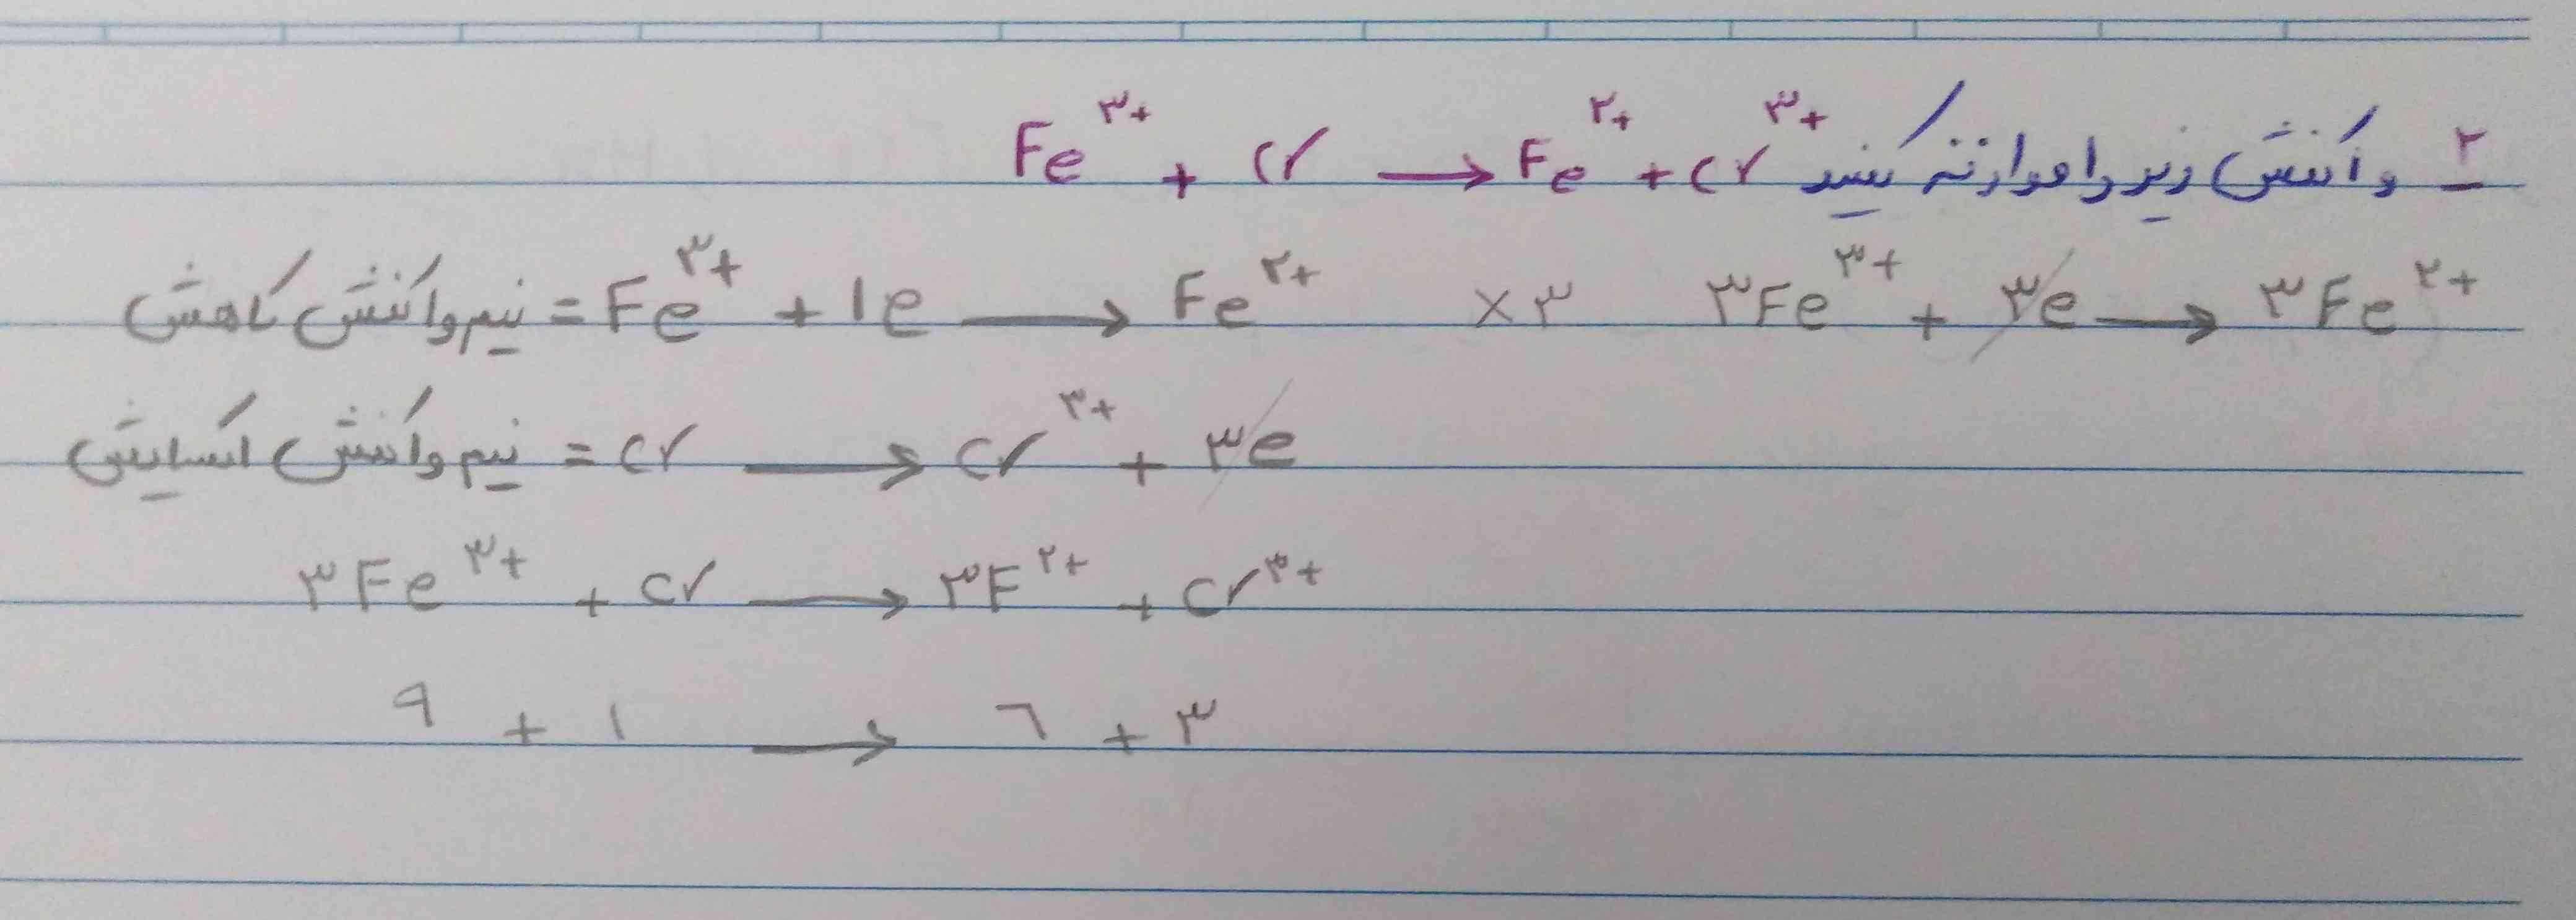 ۲_ واکنش زیر را موازنه کنید Fe³⁺ + Cr → Fe²⁺ + Cr³⁺
نیم واکنش کاهش = Fe³⁺ + 1e → Fe²⁺ ×۳ ۳Fe³⁺ + ۳e → ۳Fe²⁺
نیم واکنش اکسایش = Cr → Cr³⁺ + ۳e
۳Fe³⁺ + Cr → ۳F²⁺ + Cr³⁺
۹ + ۱ → ۶ + ۳